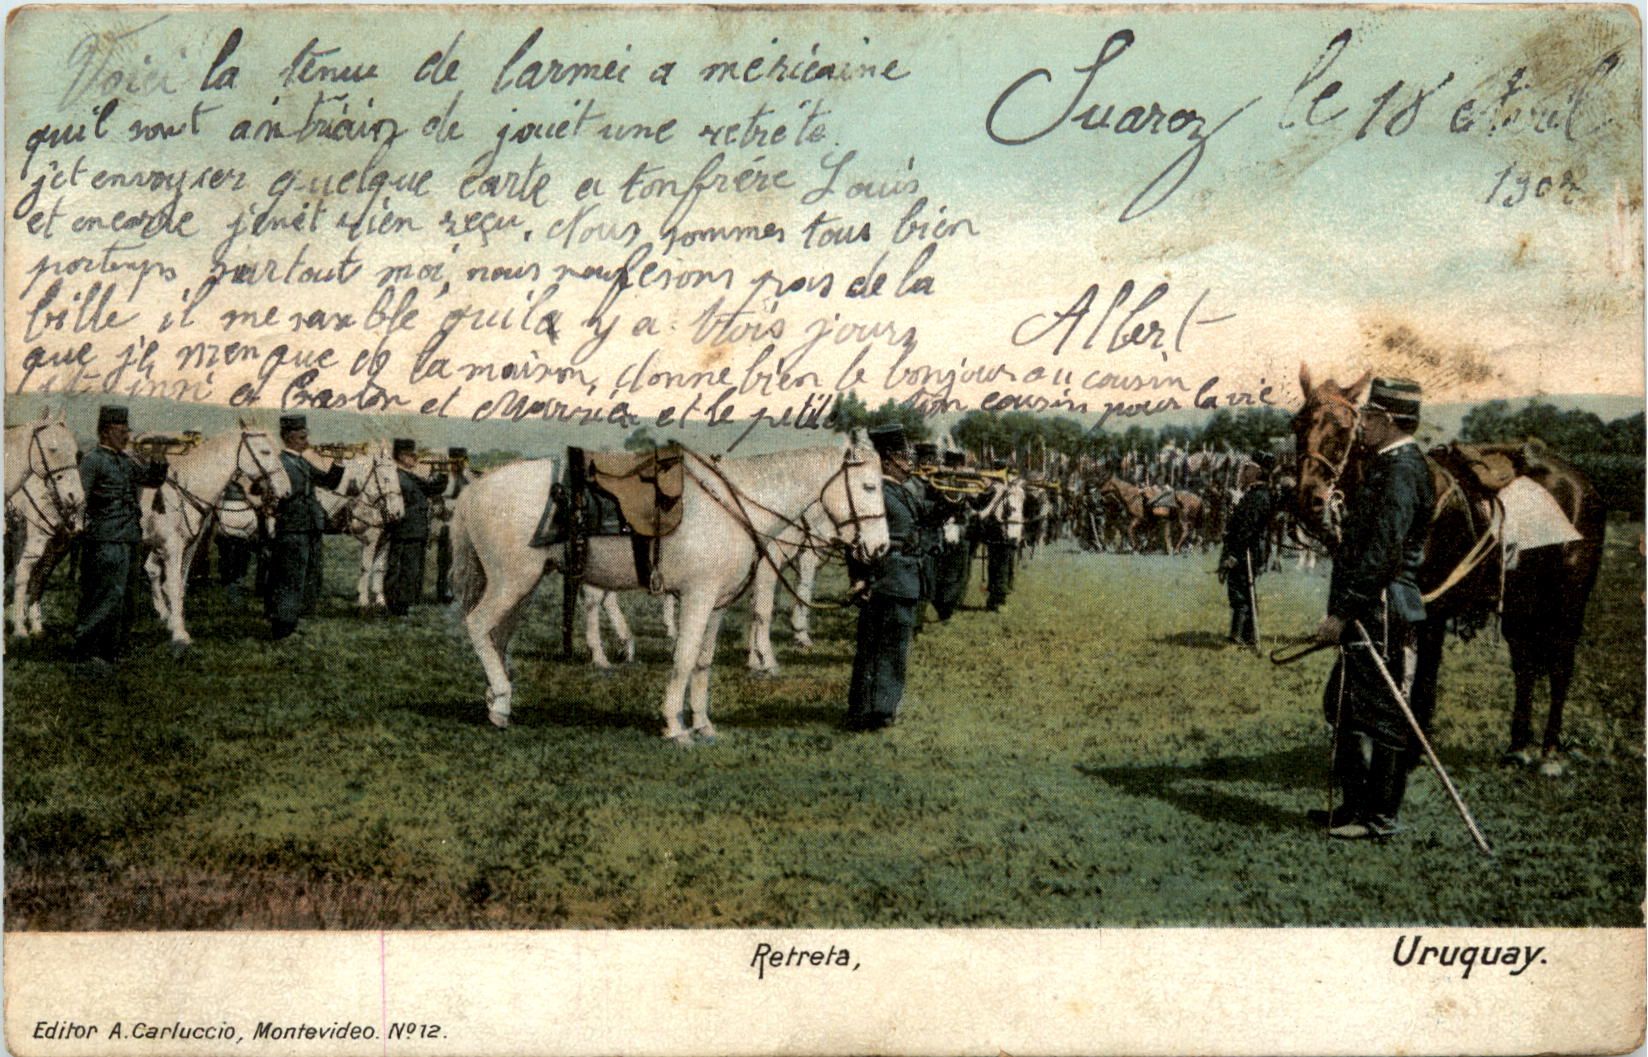 Voici la tenue de larméi a méricaine
quil sont äntrain de jouét une retréte.
Suarez le 18 Avril
j'et envoyier quelque carte a ton frére Louis
190
et encore j'enét rien reçu. Nous sommes tous bien
portemps surtout moi, nous nous fesons pas de la
bille il me samblé quila y a trois jours
Albert
que je menque de la maison, donne bien le bonjour au cousin
et Gaston et Mariéé et le petite ton cousin pour la vie
Retreta,
Uruguay.
Editor A. Carluccio, Montevideo. Nº 12.